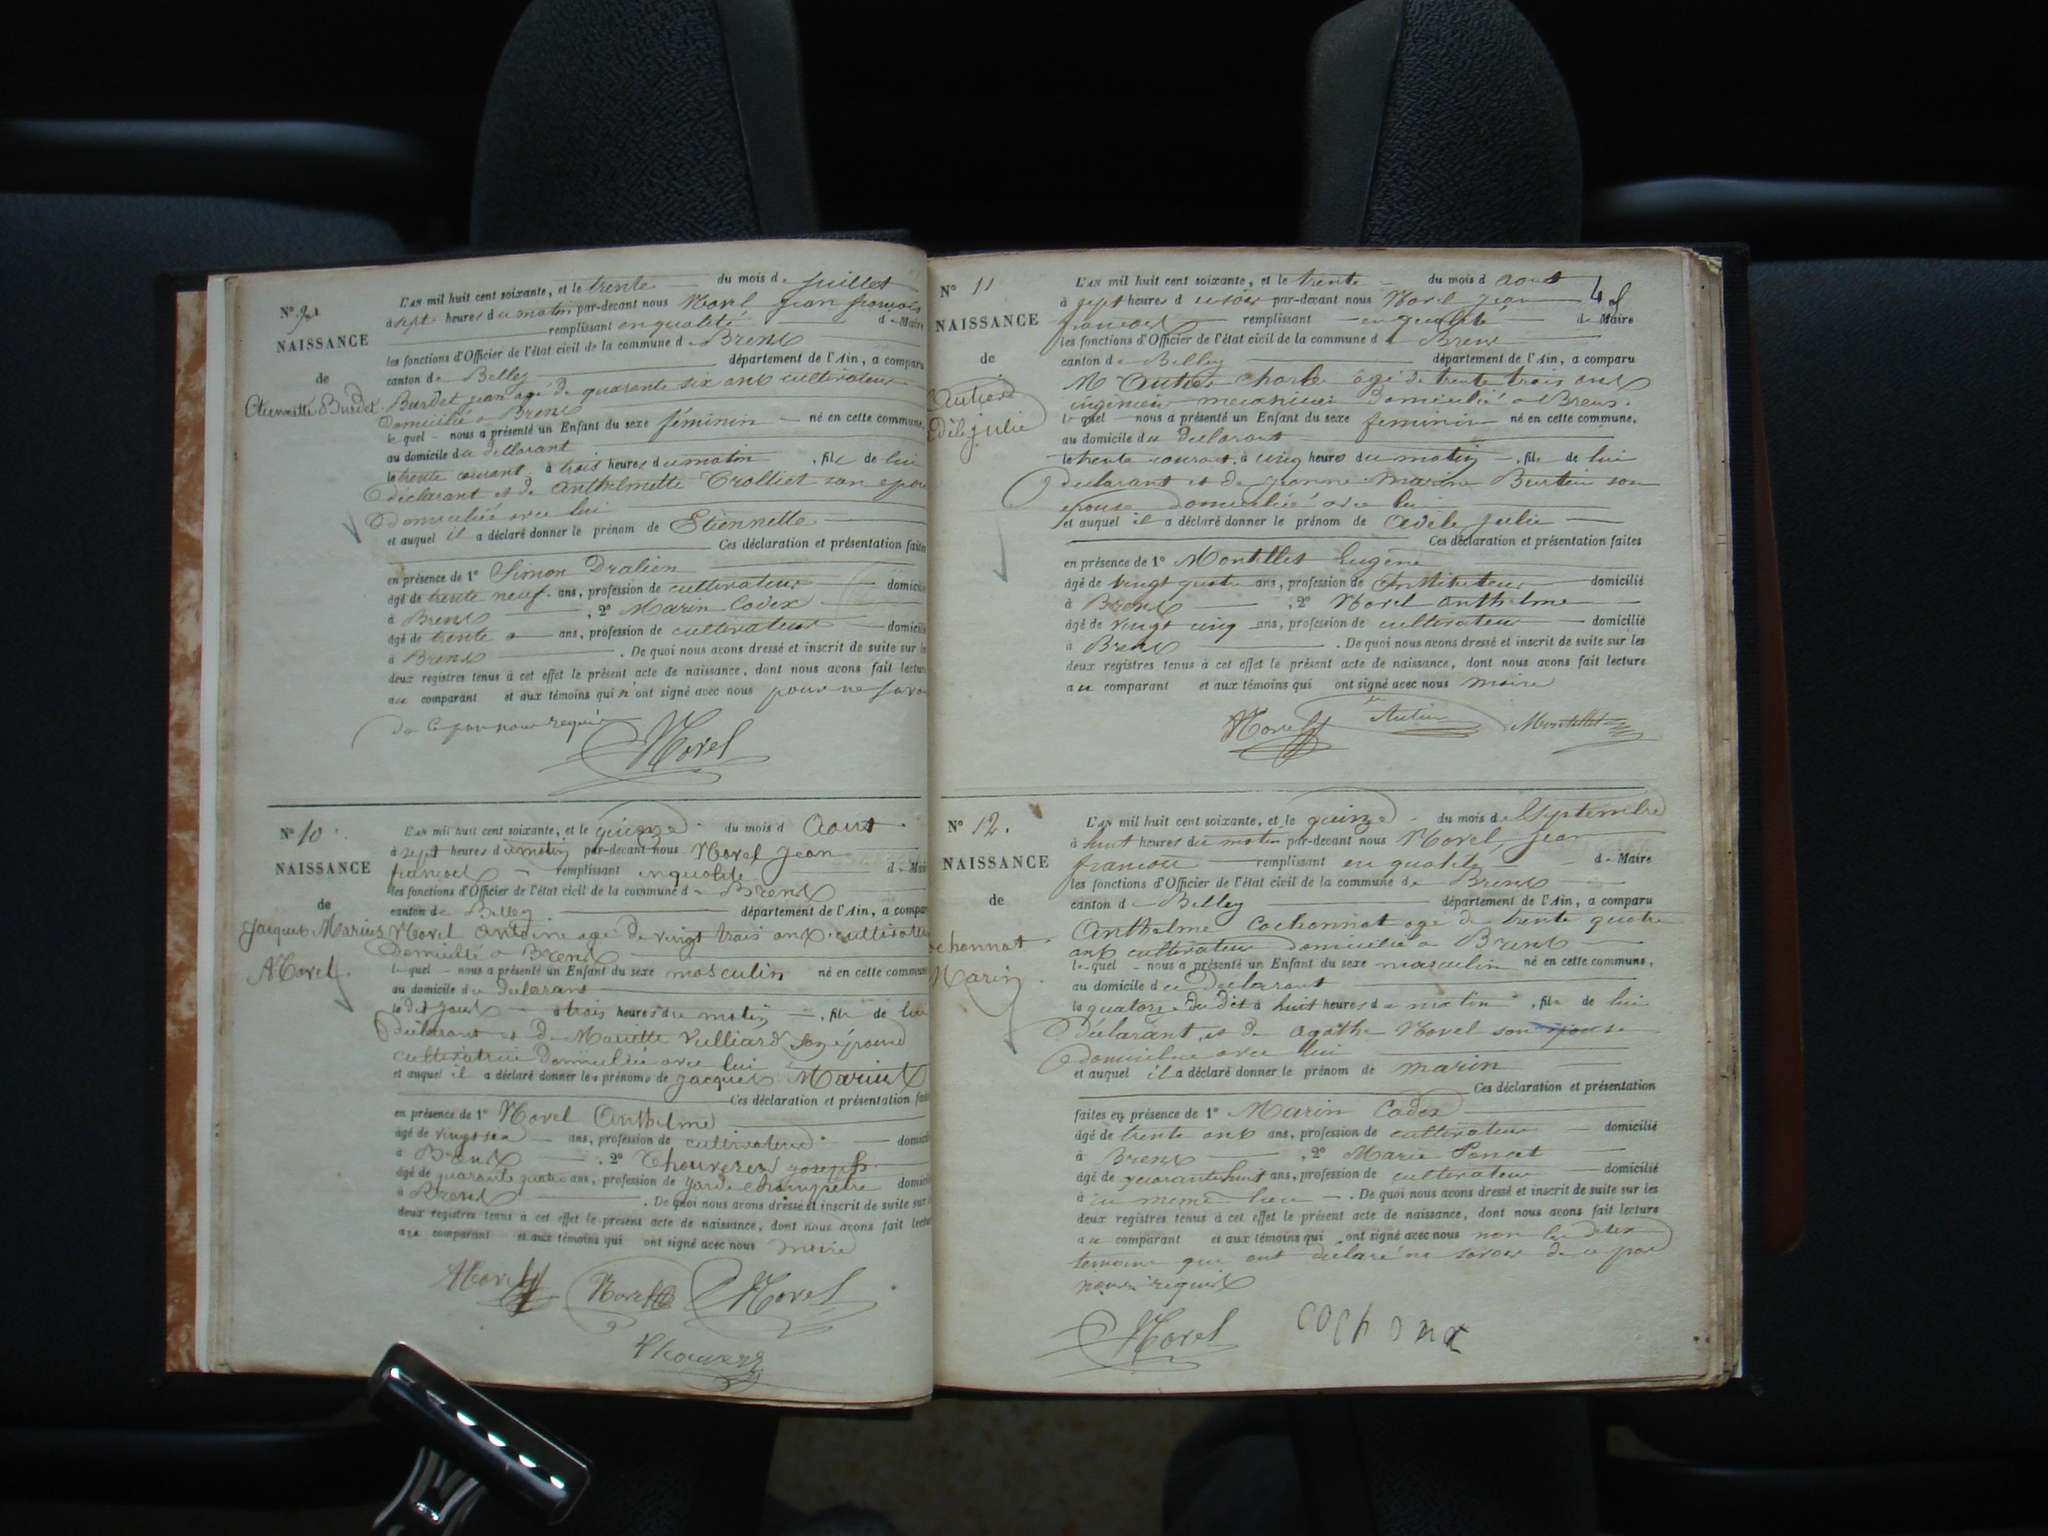 N° 9
NAISSANCE
de
Etiennette Burdet
L'AN mil huit cent soixante, et le trente du mois de Juillet
à sept heures du matin par-devant nous Morel Jean françois
remplissant en qualité de Maire
les fonctions d'Officier de l'état civil de la commune de Brens
canton de Belley département de l'Ain, a comparu
Burdet jean agé de quarante six ans cultivateur
domicilié a Brens
lequel nous a présenté un Enfant du sexe féminin né en cette commune,
au domicile du déclarant
le trente courant, à trois heures du matin, fille de lui
déclarant et de Anthelmette Trolliet son épouse
domiciliée avec lui
et auquel il a déclaré donner le prénom de Etiennette
Ces déclaration et présentation faites
en présence de 1° Simon Dralien
âgé de trente neuf ans, profession de cultivateur domicilié
à Brens, 2° Marin Codex
âgé de trente ans, profession de cultivateur domicilié
à Brens. De quoi nous avons dressé et inscrit de suite sur les
deux registres tenus à cet effet le présent acte de naissance, dont nous avons fait lecture
au comparant et aux témoins qui n'ont signé avec nous pour ne savoir
de ce par nous requis
Morel
N° 10
NAISSANCE
de
Jacques Marius
Morel
L'AN mil huit cent soixante, et le quinze du mois d Aout
à sept heures du matin par-devant nous Morel Jean
francois remplissant en qualité de Maire
les fonctions d'Officier de l'état civil de la commune de Brens
canton de Belley département de l'Ain, a comparu
Morel Antoine agé de vingt trois ans cultivateur
Domicilié a Brens
lequel nous a présenté un Enfant du sexe masculin né en cette commune
au domicile du declarant
le dit jour à trois heures du matin, fils de lui
déclarant et de Mariette Vulliard son épouse
cultivatrice Domiciliée avec lui
et auquel il a déclaré donner les prénoms de Jacques Marius
Ces déclaration et présentation faites
en présence de 1° Morel Anthelme
âgé de ans, profession de cultivateur domicilié
à Brens, 2° Joseph
âgé de quarante quatre ans, profession de garde champetre domicilié
à Brens. De quoi nous avons dressé et inscrit de suite sur les
deux registres tenus à cet effet le présent acte de naissance, dont nous avons fait lecture
aux comparant et aux témoins qui ont signé avec nous maire
Morel Morel Morel
N° 11
NAISSANCE
de
Autier
Adèle julie
L'AN mil huit cent soixante, et le trente du mois d Aout 4
à sept heures du soir par-devant nous Morel Jean
francois remplissant en qualité de Maire
les fonctions d'Officier de l'état civil de la commune de Brens
canton de Belley département de l'Ain, a comparu
M Autier Charle âgé de trente trois ans
ingénieur mecanicien Domicilié a Brens.
lequel nous a présenté un Enfant du sexe feminin né en cette commune,
au domicile du declarant
le trente courant, à cinq heures du matin, fille de lui
declarant et de jeanne marine Burtin son
epouse domiciliée avec lui
et auquel il a déclaré donner le prénom de Adèle Julie
Ces déclaration et présentation faites
en présence de 1° Montillet Eugène
âgé de vingt quatre ans, profession de Instituteur domicilié
à Brens, 2° Morel Anthelme
âgé de vingt cinq ans, profession de cultivateur domicilié
à Brens. De quoi nous avons dressé et inscrit de suite sur les
deux registres tenus à cet effet le présent acte de naissance, dont nous avons fait lecture
au comparant et aux témoins qui ont signé avec nous maire
Morel Autier Montillet
N° 12.
NAISSANCE
de
Cochonnat
Marin
L'AN mil huit cent soixante, et le quinze du mois de Septembre
à huit heures du matin par-devant nous Morel Jean
francois remplissant en qualité de Maire
les fonctions d'Officier de l'état civil de la commune de Brens
canton de Belley département de l'Ain, a comparu
Anthelme Cochonnat agé de trente quatre
ans cultivateur domicilié a Brens
lequel nous a présenté un Enfant du sexe masculin né en cette commune,
au domicile du Declarant
le quatorze du dit à huit heures du matin, fils de lui
déclarant, et de Agathe Morel son épouse
domiciliée avec lui
et auquel il a déclaré donner le prénom de marin
Ces déclaration et présentation
faites en présence de 1° Marin Codex
âgé de trente ans ans, profession de cultivateur domicilié
à Brens, 2° Marie Poncet
âgé de quarante huit ans, profession de cultivateur domicilié
à au meme lieu. De quoi nous avons dressé et inscrit de suite sur les
deux registres tenus à cet effet le présent acte de naissance, dont nous avons fait lecture
au comparant et aux témoins qui ont signé avec nous non les deux
temoins qui ont déclaré ne savoir de ce par
nous requis
Morel